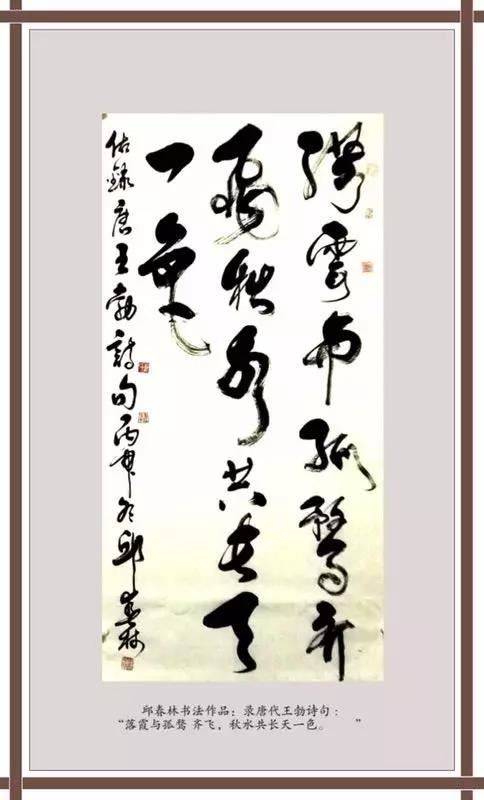 落霞与孤鹜齐
飞秋水共长天
一色
録唐王勃詩句丙申冬邱春林
邱春林书法作品：录唐代王勃诗句：
“落霞与孤骛 齐飞，秋水共长天一色。 ”